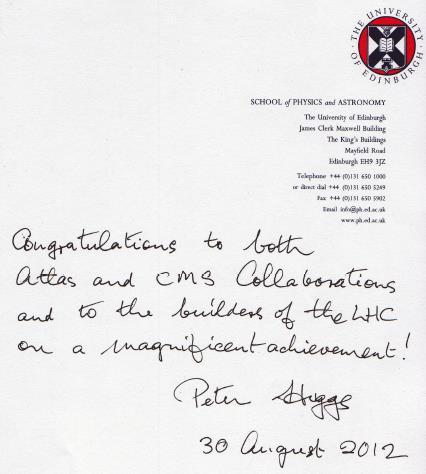 THE UNIVERSITY OF EDINBURGH
SCHOOL of PHYSICS and ASTRONOMY
The University of Edinburgh
James Clerk Maxwell Building
The King's Buildings
Mayfield Road
Edinburgh EH9 3JZ
Telephone +44 (0)131 650 1000
or direct dial +44 (0)131 650 5249
Fax +44 (0)131 650 5902
Email info@ph.ed.ac.uk
www.ph.ed.ac.uk
Congratulations to both
Atlas and CMS Collaborations
and to the builders of the LHC
on a magnificent achievement!
Peter Higgs
30 August 2012